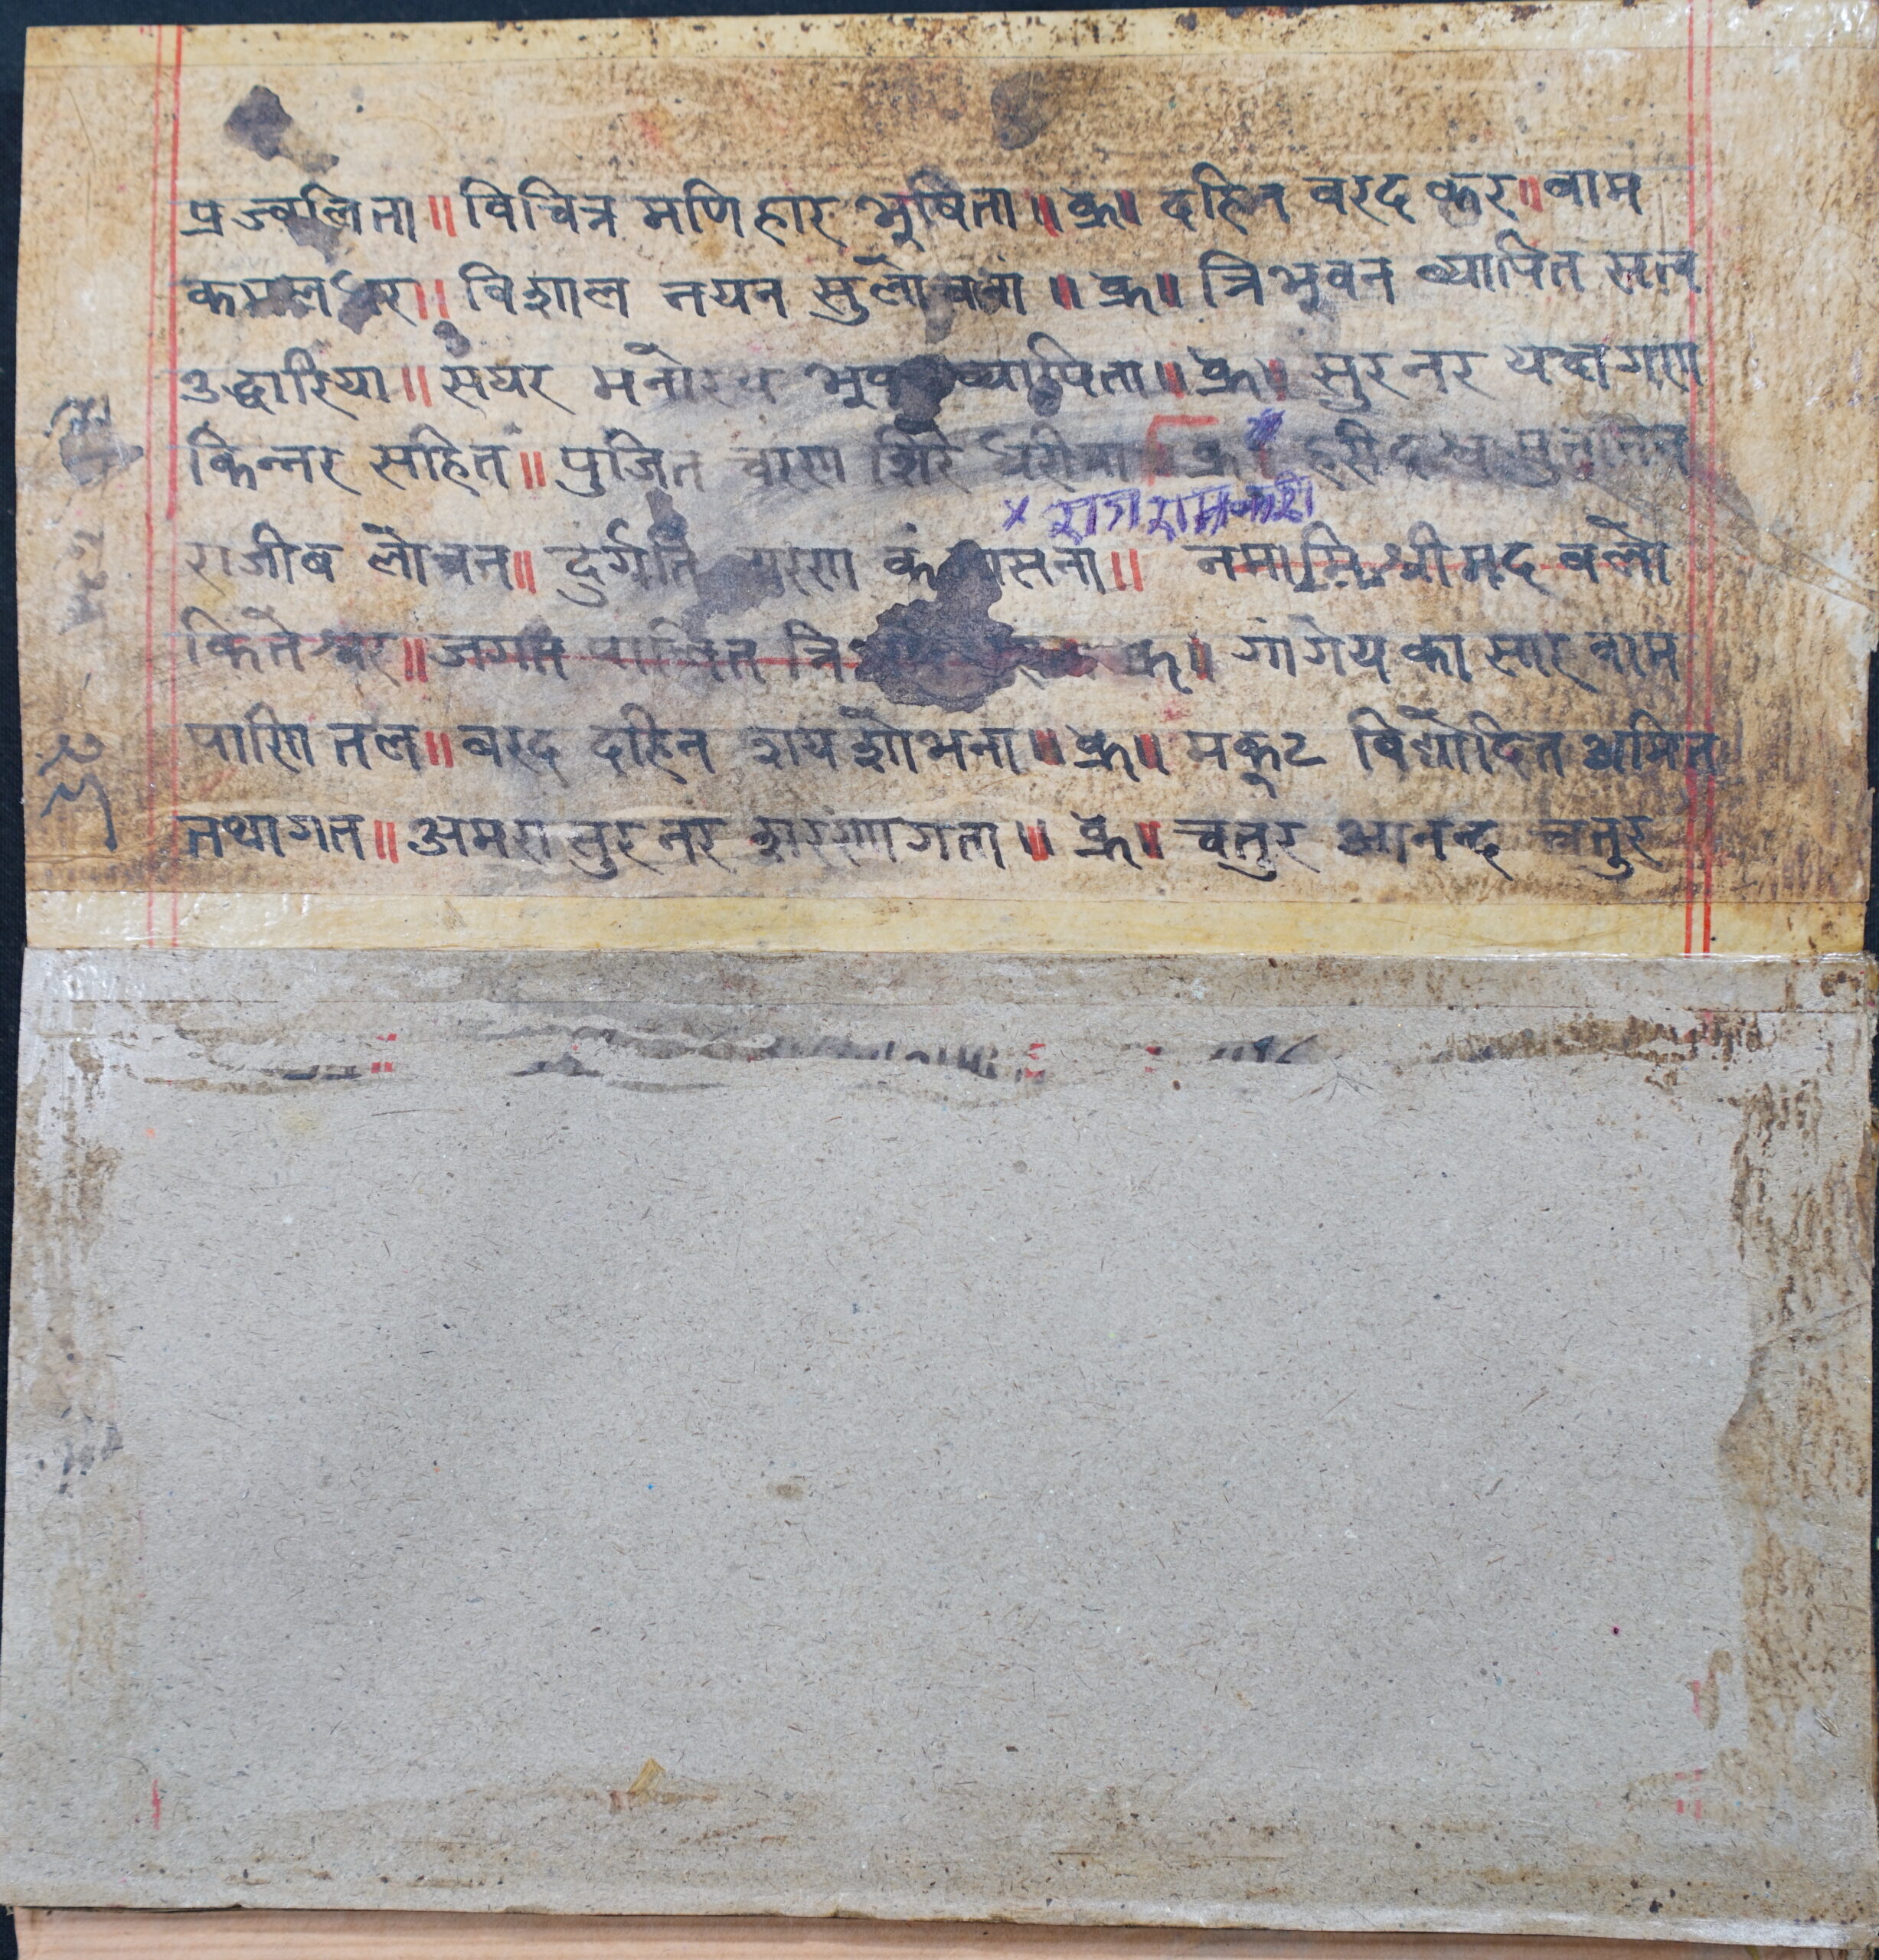 प्रज्वलिता॥ विचित्र मणि हार भुषिता॥ क्र॥ दहिन वरद कर॥ वाम
कमल धर॥ विशाल नयन सुलोचना॥ क्र॥ त्रिभुवन व्यापित सत्व
उद्धारिया॥ सयर मनोरथ व्यापिता॥ क्र॥ सुर नर यक्ष गण
किन्नर सहित॥ पुजित चरण शिरे धरीया क्र
× राग रामकरी
राजीव लोचन॥ दुर्गति नमामि श्रीमद वलो
कितेश्वर॥ जगत पालित क्र॥ गांगेय का सार वाम
पाणि तल॥ वरद दहिन शय शोभना॥ क्र॥ मकुट विशोदित अमित
तथागत॥ अमरा सुर नर शरणागता॥ क्र॥ चतुर आनन्द चतुर